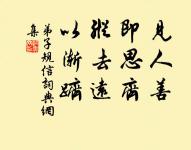 見人善
即思齊
縱去遠
以漸躋
弟子規信詞典網
集